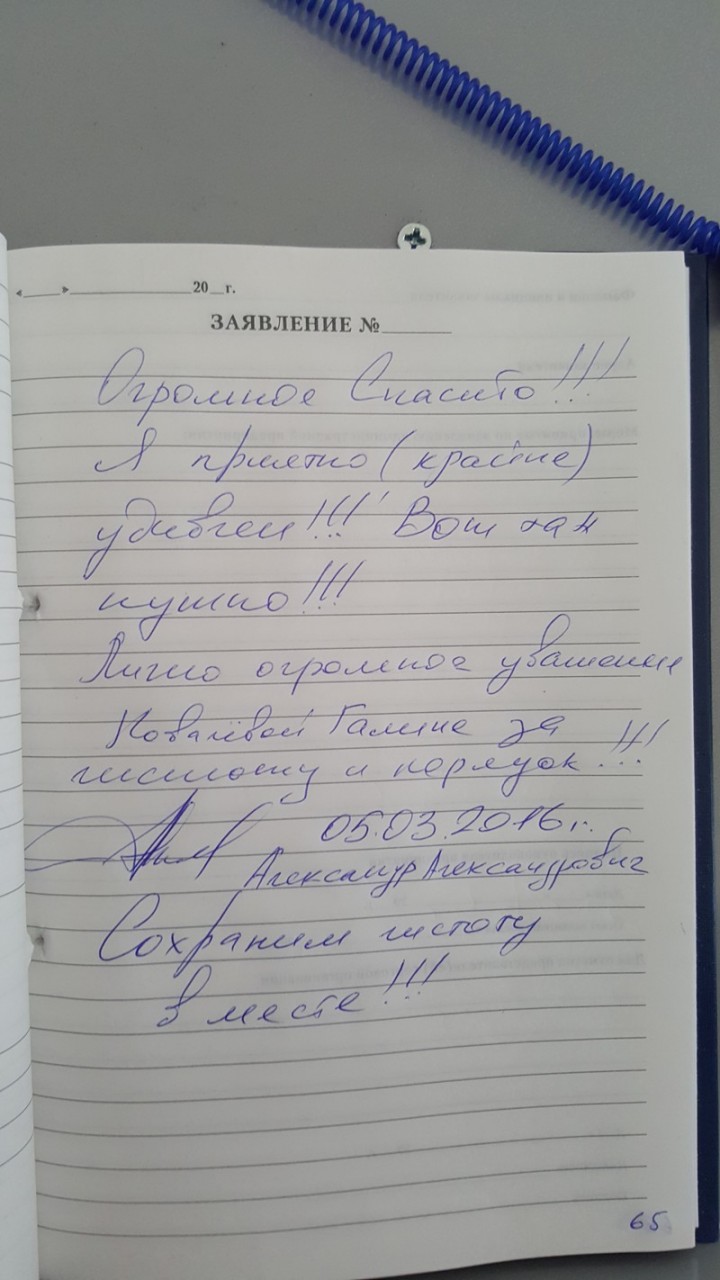 «____»______________20__г.
ЗАЯВЛЕНИЕ №______
Огромное Спасибо!!!
Я приятно (крайне)
удивлен!!! Вот так
нужно!!!
Лично огромное уважение
Ковалёвой Галине за
чистоту и порядок!!!
05.03.2016г.
Александр Александрович
Сохраним чистоту
вместе!!!
65